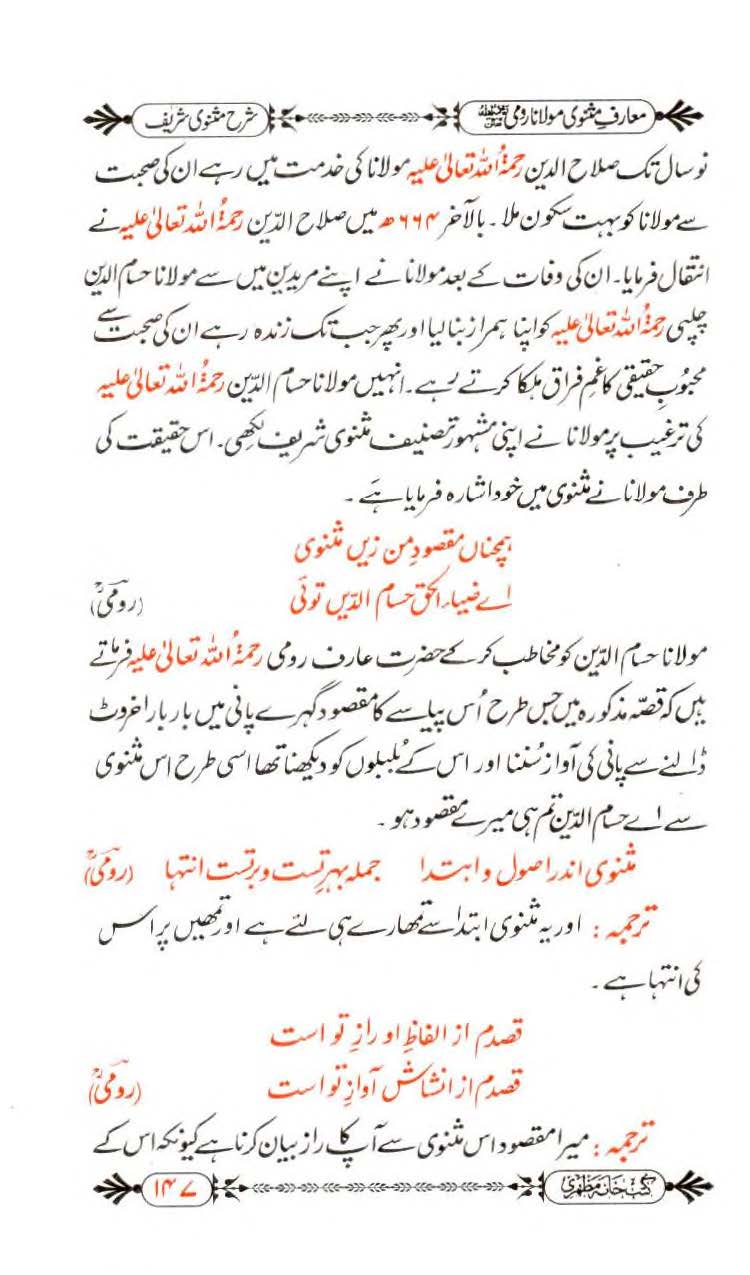 معارفِ مثنوی مولانا رومی شرح مثنوی شریف
نو سال تک صلاح الدین رحمۃ اللہ تعالیٰ علیہ مولانا کی خدمت میں رہے ان کی صحبت
سے مولانا کو بہت سکون ملا۔ بالآخر ۶۶۴ھ میں صلاح الدّین رحمۃُ اللہ تعالیٰ علیہ نے
انتقال فرمایا۔ ان کی وفات کے بعد مولانا نے اپنے مریدین میں سے مولانا حسام الدین
چلپی رحمۃُ اللہ تعالیٰ علیہ کو اپنا ہمراز بنا لیا اور پھر جب تک زندہ رہے ان کی صحبت سے
محبوبِ حقیقی کا غمِ فراق ہلکا کرتے رہے۔ انہیں مولانا حسام الدّین رحمۃُ اللہ تعالیٰ علیہ
کی ترغیب پر مولانا نے اپنی مشہور تصنیف مثنوی شریف لکھی۔ اس حقیقت کی
طرف مولانا نے مثنوی میں خود اشارہ فرمایا ہَے ۔
ہمچناں مقصودِ من زیں مثنوی
اے ضیاء الحق حسام الدّیں توئی (رومیؒ)
مولانا حسام الدّین کو مخاطب کر کے حضرت عارف رومی رحمۃُ اللہ تعالیٰ علیہ فرماتے
ہیں کہ قصّہ مذکورہ میں جس طرح اُس پیاسے کا مقصود گہرے پانی میں بار بار اخروٹ
ڈالنے سے پانی کی آواز سُننا اور اس کے بُلبلوں کو دیکھنا تھا اسی طرح اس مثنوی
سے اے حسام الدّین تم ہی میرے مقصود ہو ۔
مثنوی اندر اصول و ابتدا جملہ بہرِ تست و بر تست انتہا (رومیؒ)
ترجمہ : اور یہ مثنوی ابتدا سے تمھارے ہی لئے ہے اور تمھیں پر اس
کی انتہا ہے ۔
قصدم از الفاظِ او رازِ تو است
قصدم از انشاش آوازِ تو است (رومیؒ)
ترجمہ : میرا مقصود اس مثنوی سے آپ کا راز بیان کرنا ہے کیونکہ اس کے
کتب خانہ مظہری ۱۴۷